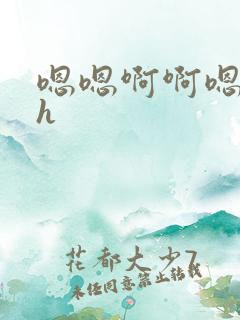 嗯嗯啊啊嗯
h
花都大少7
未经同意禁止转载